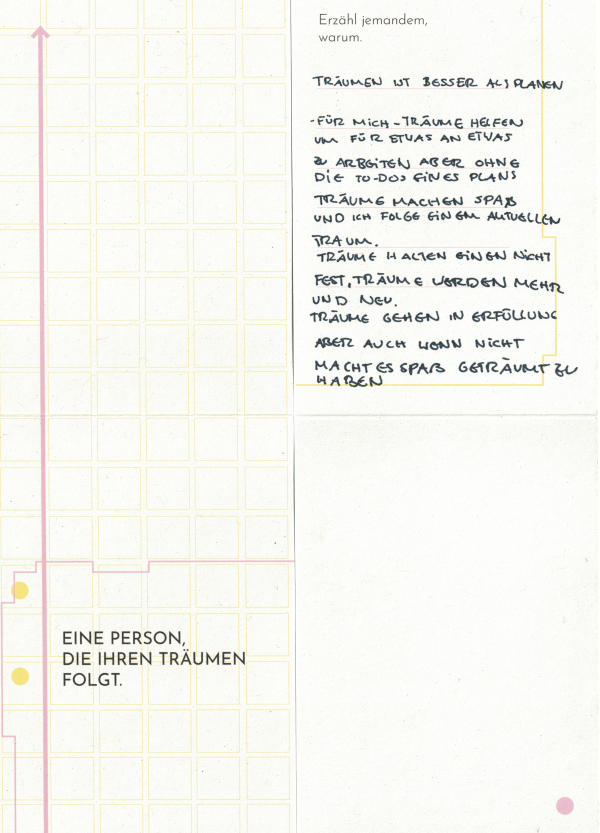 Erzähl jemandem,
warum.
TRÄUMEN IST BESSER ALS PLANEN
-FÜR MICH-TRÄUME HELFEN
UM FÜR ETWAS AN ETWAS
ZU ARBEITEN ABER OHNE
DIE TO-DOS EINES PLANS
TRÄUME MACHEN SPAß
UND ICH FOLGE EINEM AKTUELLEN
TRAUM.
TRÄUME HALTEN EINEN NICHT
FEST, TRÄUME WERDEN MEHR
UND NEU.
TRÄUME GEHEN IN ERFÜLLUNG
ABER AUCH WENN NICHT
MACHT ES SPAß GETRÄUMT ZU
HABEN
EINE PERSON,
DIE IHREN TRÄUMEN
FOLGT.